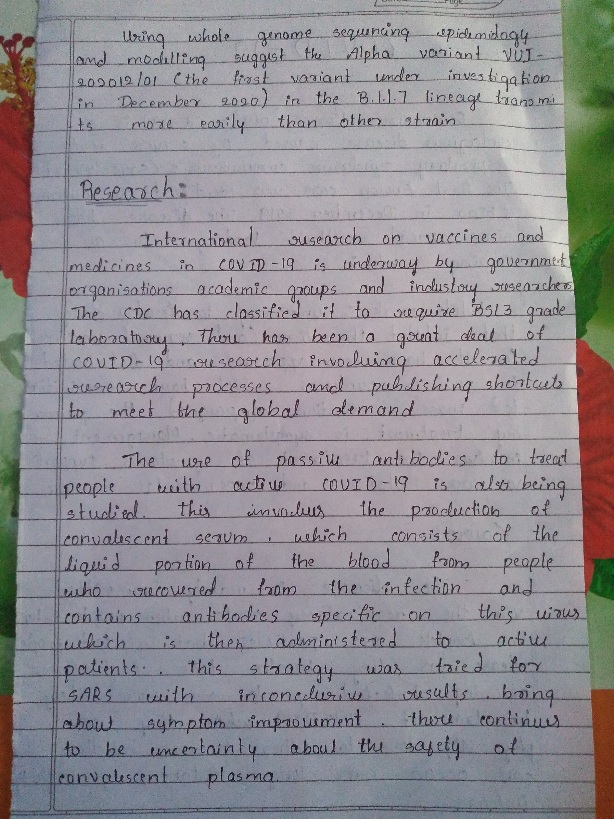 Using whole genome sequencing epidemiology
and modelling suggest the Alpha variant VUI-
202012/01 (the first variant under investigation
in December 2020) in the B.1.1.7 lineage transmi
ts more easily than other strain
Research:
International research on vaccines and
medicines in COVID-19 is underway by government
organisations academic groups and industry researchers
The CDC has classified it to require BSL3 grade
laboratory. There has been a great deal of
COVID-19 research involving accelerated
research processes and publishing shortcuts
to meet the global demand
The use of passive antibodies to treat
people with active COVID-19 is also being
studied. this involves the production of
convalescent serum. which consists of the
liquid portion of the blood from people
who recovered from the infection and
contains antibodies specific on this virus
which is then administered to active
patients. this strategy was tried for
SARS with inconclusive results. bring
about symptom improvement. there continues
to be uncertainty about the safety of
convalescent plasma.